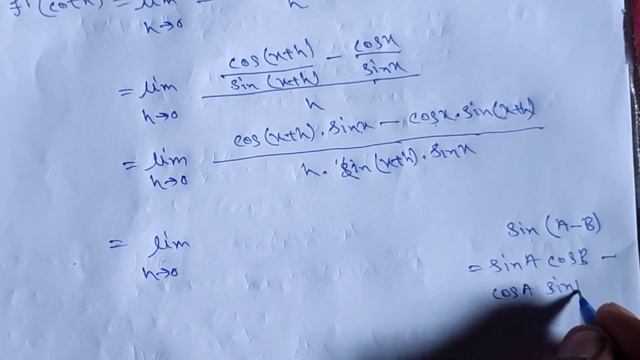 f'(cotx) = lim h→0 h
= lim h→0 (cos(x+h)/sin(x+h) - cosx/sinx)/h
= lim h→0 (cos(x+h).sinx - cosx.sin(x+h))/(h. sin(x+h).sinx)
= lim h→0
sin (A-B)
= sinA cosB -
cosA sin